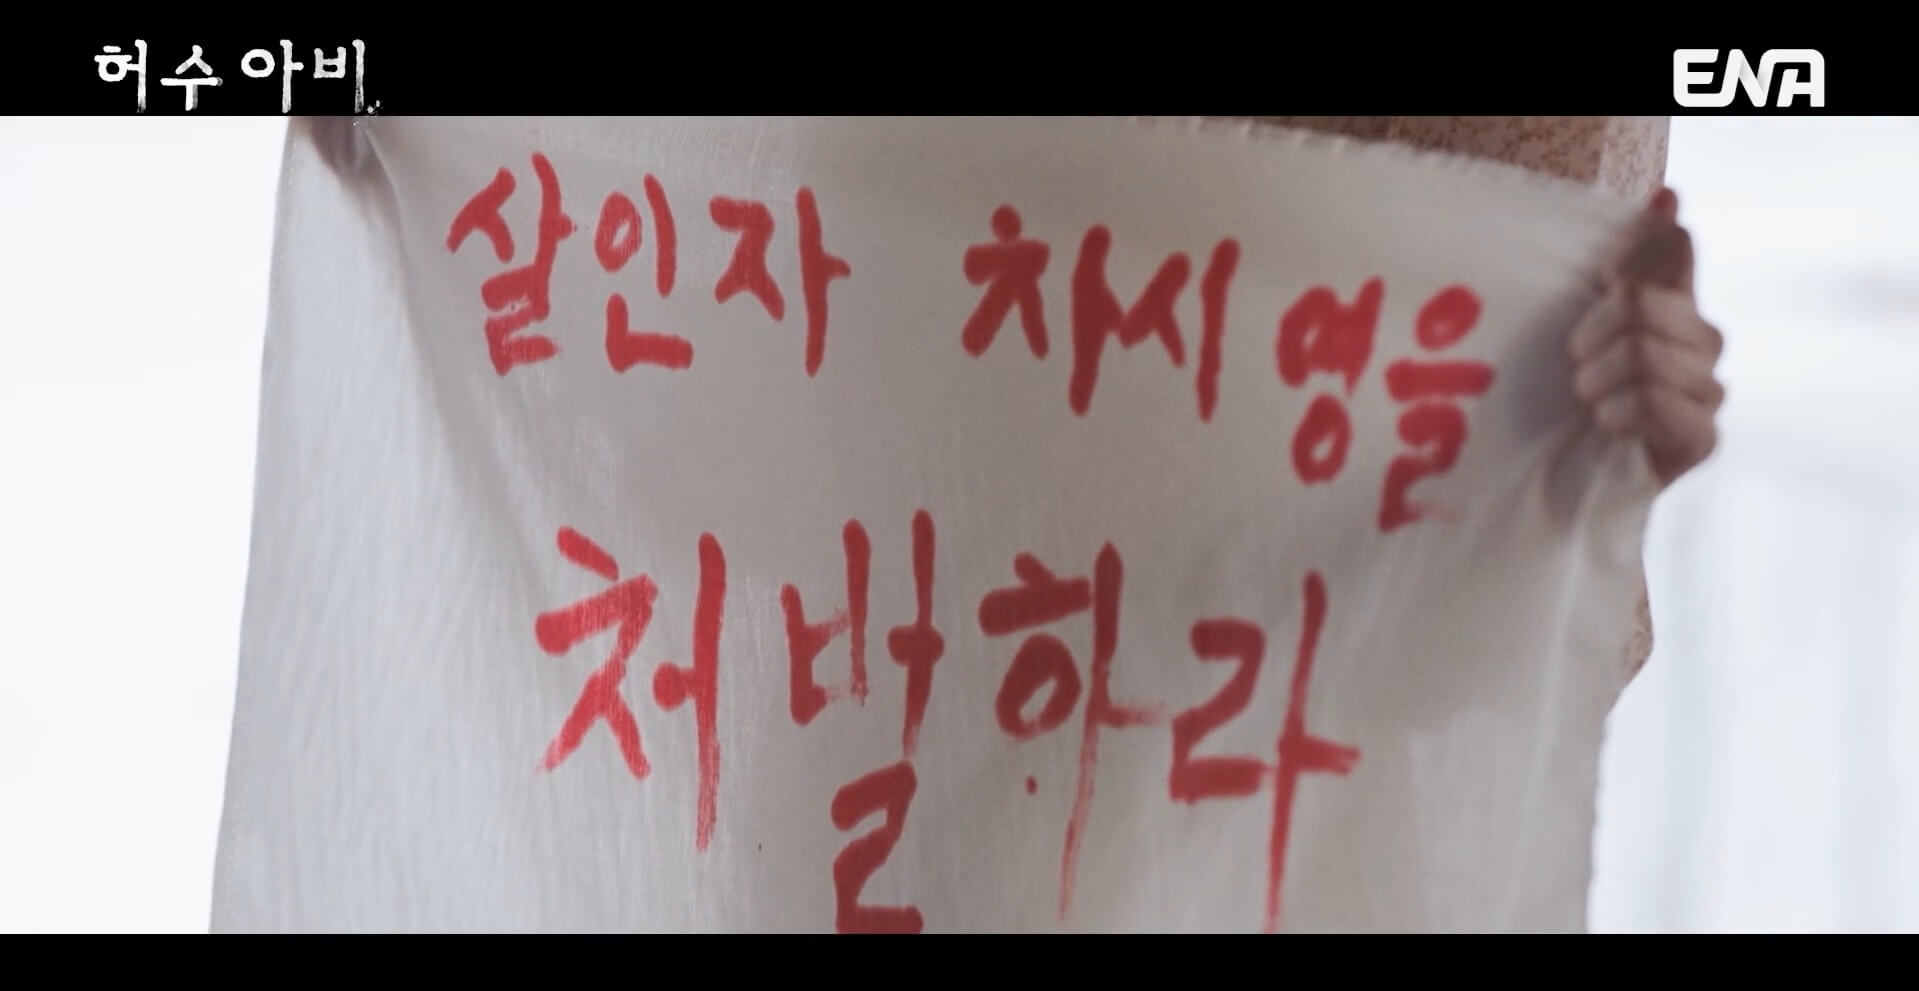 허수아비
ENA
살인자 차시영을
처벌하라